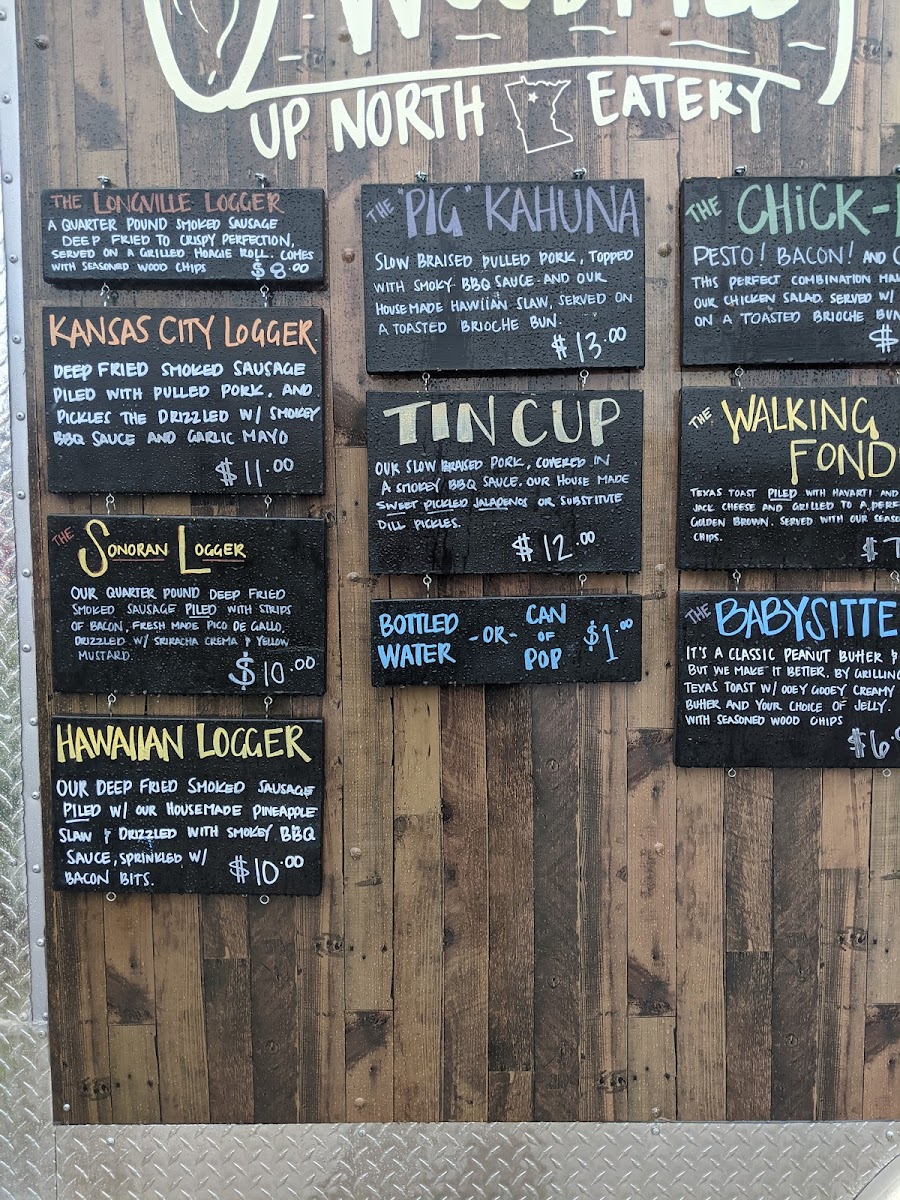 UP NORTH EATERY
THE LONGVILLE LOGGER
A QUARTER POUND SMOKED SAUSAGE
DEEP FRIED TO CRISPY PERFECTION,
SERVED ON A GRILLED HOAGIE ROLL. COMES
WITH SEASONED WOOD CHIPS $8.00
KANSAS CITY LOGGER
DEEP FRIED SMOKED SAUSAGE
PILED WITH PULLED PORK, AND
PICKLES THE DRIZZLED W/ SMOKEY
BBQ SAUCE AND GARLIC MAYO
$11.00
THE SONORAN LOGGER
OUR QUARTER POUND DEEP FRIED
SMOKED SAUSAGE PILED WITH STRIPS
OF BACON, FRESH MADE PICO DE GALLO,
DRIZZLED W/ SRIRACHA CREMA & YELLOW
MUSTARD.
$10.00
HAWAIIAN LOGGER
OUR DEEP FRIED SMOKED SAUSAGE
PILED W/ OUR HOUSEMADE PINEAPPLE
SLAW & DRIZZLED WITH SMOKEY BBQ
SAUCE, SPRINKLED W/
BACON BITS. $10.00
THE "PIG" KAHUNA
SLOW BRAISED PULLED PORK, TOPPED
WITH SMOKY BBQ SAUCE AND OUR
HOUSEMADE HAWIIAN SLAW, SERVED ON
A TOASTED BRIOCHE BUN.
$13.00
TIN CUP
OUR SLOW BRAISED PORK, COVERED IN
A SMOKEY BBQ SAUCE. OUR HOUSE MADE
SWEET PICKLED JALAPENOS OR SUBSTITUTE
DILL PICKLES.
$12.00
BOTTLED WATER -OR- CAN OF POP $1.00
THE CHICK-
PESTO! BACON! AND
THIS PERFECT COMBINATION
OUR CHICKEN SALAD. SERVED W/
ON A TOASTED BRIOCHE
$
THE WALKING
FOND
TEXAS TOAST PILED WITH HAVARTI AND
JACK CHEESE AND GRILLED TO A
GOLDEN BROWN. SERVED WITH OUR
CHIPS.
$7
THE BABYSITTE
IT'S A CLASSIC PEANUT BUTTER &
BUT WE MAKE IT BETTER. BY GRILLING
TEXAS TOAST W/ OOEY GOOEY CREAMY
BUTTER AND YOUR CHOICE OF JELLY.
WITH SEASONED WOOD CHIPS
$6.